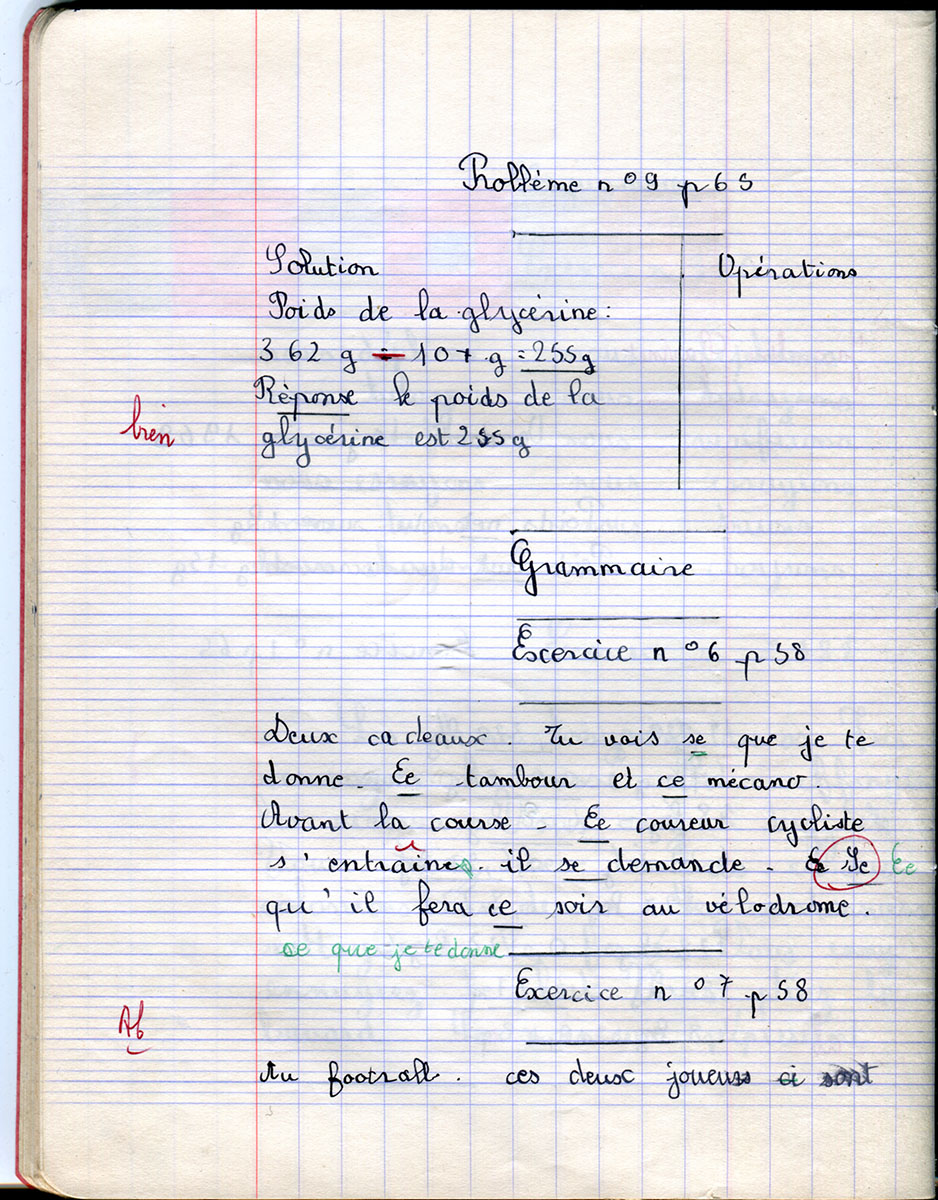 Problème n° 9 p 65
Solution
Opérations
Poids de la glycérine :
362 g - 107 g = 255g
Réponse le poids de la
bien
glycérine est 255g
Grammaire
Excercice n° 6 p 58
Deux cadeaux. Tu vois se que je te
donne. Ce tambour et ce mécano.
Avant la course - Ce coureur cycliste
s'entraîne. il se demande - Se Ce
qu'il fera ce soir au vélodrome.
ce que je te donne
Exercice n° 7 p 58
Ab
Au football. ces deux joueurs ci sont